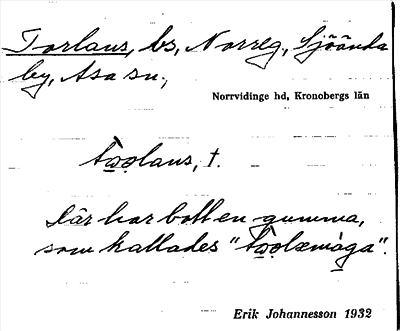 Torlaus, bs, Norreg, Sjöända
by, Asa sn.,
Norrvidinge hd, Kronobergs län
tωọlaus, f.
Där har bott en gumma,
som kallades "tωọlæmåga".
Erik Johannesson 1932